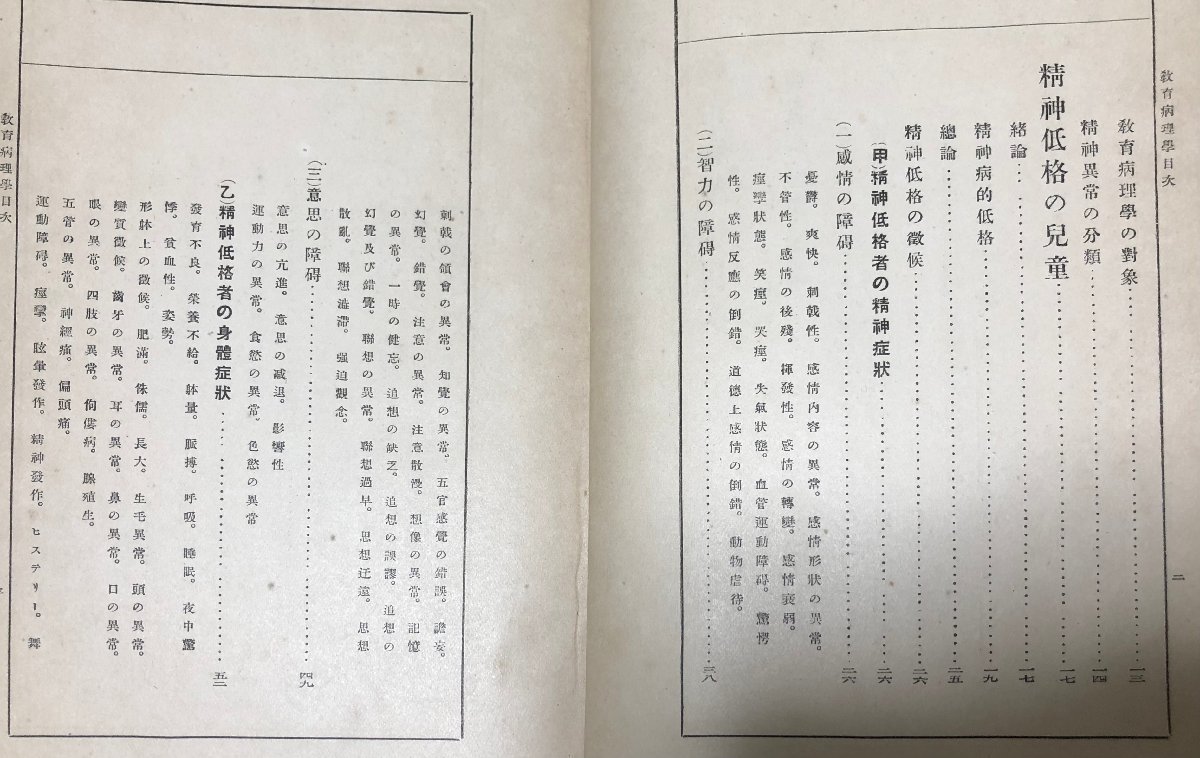 教育病理學目次
二
教育病理學の對象……一三
精神異常の分類……一四
精神低格の兒童……一七
緒論……一七
精神病的低格……一九
總論……二五
精神低格の徴候……二六
(甲)精神低格者の精神症狀……二六
(一)感情の障碍……二六
憂鬱。爽快。刺戟性。感情内容の異常。感情形狀の異常。
不管性。感情の後殘。揮發性。感情の轉變。感情衰弱。
痙攣狀態。笑痙。哭痙。失氣狀態。血管運動障碍。驚愕
性。感情反應の倒錯。道德上感情の倒錯。動物虐待。
(二)智力の障碍……三八
刺戟の領會の異常。知覺の異常。五官感覺の錯誤。譫妄。
幻覺。錯覺。注意の異常。注意散漫。想像の異常。記憶
の異常。一時の健忘。追想の缺乏。追想の誤謬。追想の
幻覺及び錯覺。聯想の異常。聯想過早。思想迂遠。思想
散亂。聯想澁滯。强迫觀念。
(三)意思の障碍……四九
意思の亢進。意思の減退。影響性
運動力の異常。食慾の異常。色慾の異常
(乙)精神低格者の身體症狀……五二
發育不良。榮養不給。躰量。脈搏。呼吸。睡眠。夜中驚
悸。貧血性。姿勢。
形躰上の徴候。肥滿。侏儒。長大。生毛異常。頭の異常。
變質徴候。齒牙の異常。耳の異常。鼻の異常。口の異常。
眼の異常。四肢の異常。佝僂病。腺殖生。
五管の異常。神經痛。偏頭痛。
運動障碍。痙攣。眩暈發作。精神發作。ヒステリー。舞
教育病理學目次